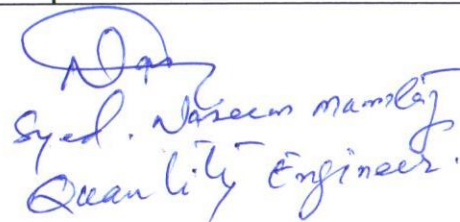 Syed. Naseem
Quantity Engineer.